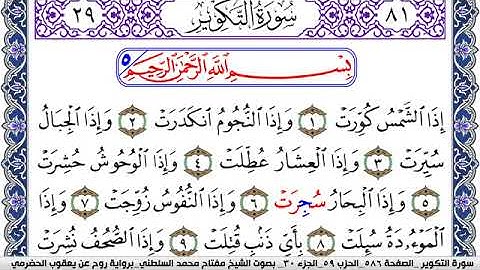 ٨١ سُورَةُ التَّكْوِيرِ ٢٩
بِسْمِ ٱللَّهِ ٱلرَّحْمَٰنِ ٱلرَّحِيمِ ٥
إِذَا ٱلشَّمۡسُ كُوِّرَتۡ ١ وَإِذَا ٱلنُّجُومُ ٱنكَدَرَتۡ ٢ وَإِذَا ٱلۡجِبَالُ
سُيِّرَتۡ ٣ وَإِذَا ٱلۡعِشَارُ عُطِّلَتۡ ٤ وَإِذَا ٱلۡوُحُوشُ حُشِرَتۡ
٥ وَإِذَا ٱلۡبِحَارُ سُجِرَتۡ ٦ وَإِذَا ٱلنُّفُوسُ زُوِّجَتۡ ٧ وَإِذَا
ٱلۡمَوۡءُۥدَةُ سُئِلَتۡ ٨ بِأَيِّ ذَنۢبٖ قُتِلَتۡ ٩ وَإِذَا ٱلصُّحُفُ نُشِرَتۡ
سورة التكوير_الصفحة ٥٨٦_الحزب ٥٩_الجزء ٣٠_ بصوت الشيخ مفتاح محمد السلطني_برواية روح عن يعقوب الحضرمي